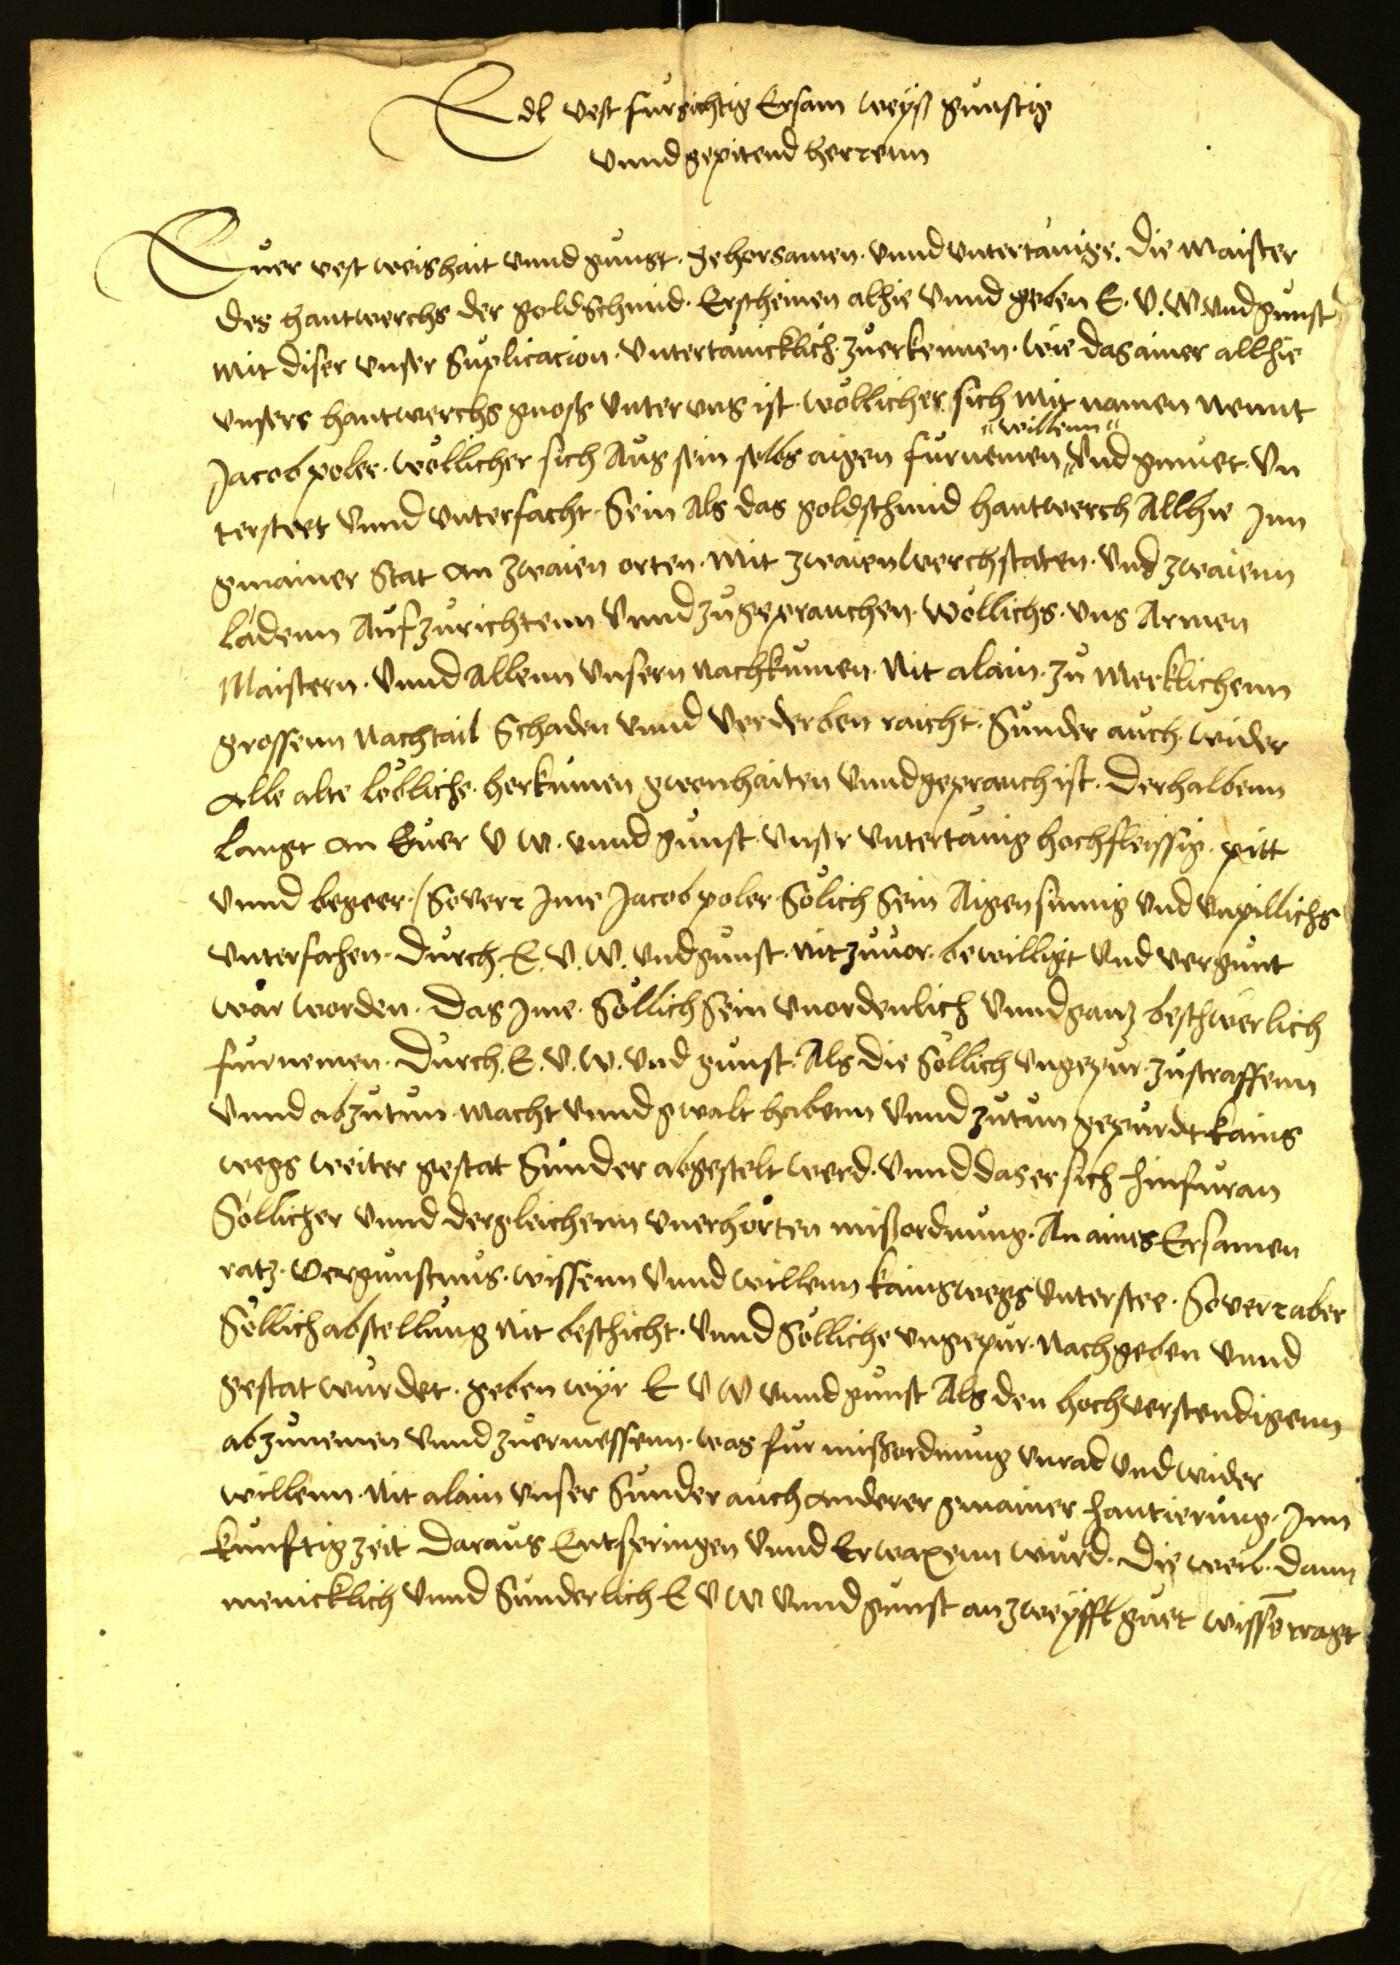 Edl vest fursichtig Ersam weyß gunstig
vnnd gepitend herrenn
Euer vest weishait vnnd gunst. gehorsamen. vnnd vntertänige. die Maister
des hantwerchs der goldschmid. Erscheinen alhie vnnd geben E. V. W. vnd gunst
mit diser vnser Suplicacion. vntertänicklich. zuerkennen. wie das ainer allhie
vnsers hantwerchs gnoss vnter vns ist. wöllicher sich mit namen nennt
"willenn"
Jacob poler. wöllicher sich Aus sein selbs aigen furnemen vnd gmuet. vn
tersteet vnnd vnterfacht. Sein Als das goldschmid hantwerch Allhie Jnn
gmainer Stat an zwaien orten. mit zwaien werchstaten. vnd zwaienn
ladenn Aufzurichtenn vnnd zugeprauchen. wöllichs. vns Armen
Maistern. vnnd Allenn vnsern nachkumen. nit alain. zu merklichenn
grossenn nachtail Schaden vnnd verderben raicht. Sunder auch wider
alle alte löbliche. herkumen gwonhaiten vnnd geprauch ist. Derhalbenn
langt an Euer V W. vnnd gunst. vnser vntertänig hochfleissig. pitt
vnnd begeer. Soverr Jme Jacob poler Sölich Sein Aigensinnig vnd vnpillichs
vnterfahen. durch. E. V. W. vnd gunst. nit zuuor. bewilligt vnd vergunt
wär worden. Das Jme. Söllich Sein vnordenlich vnnd ganz beschwerlich
furnemen. durch. E. V. W. vnd gunst. Als die Söllich vngepur. zustraffenn
vnnd abzutun. macht vnnd gwalt habenn vnnd zutun gepurdt kains
wegs weiter gestat Sunder abgestelt werd. vnnd das er sich hinfuran
Söllicher vnnd dergleichenn vnerhörten mißordnung. An aines Ersamen
ratz. vergunstnus. wissenn vnnd willenn kainswegs vnterstee. Soverr aber
Söllich abstellung nit beschicht. vnnd Sölliche vngepur. nachgeben vnnd
gestat wurdet. geben wyr E V W vnnd gunst Als den hochverstendigenn
abzunemen vnnd zuermessenn. was fur mißordnung vnrad vnd wider
willenn. nit alain vnser Sunder auch anderer gmainer hantierung. Jnn
kunftig zeit daraus Entspringen vnnd Erwaxenn wurd. Die weil. dann
menicklich vnnd Sunderlich E V W vnnd gunst an zweyffl guet wissē tragt